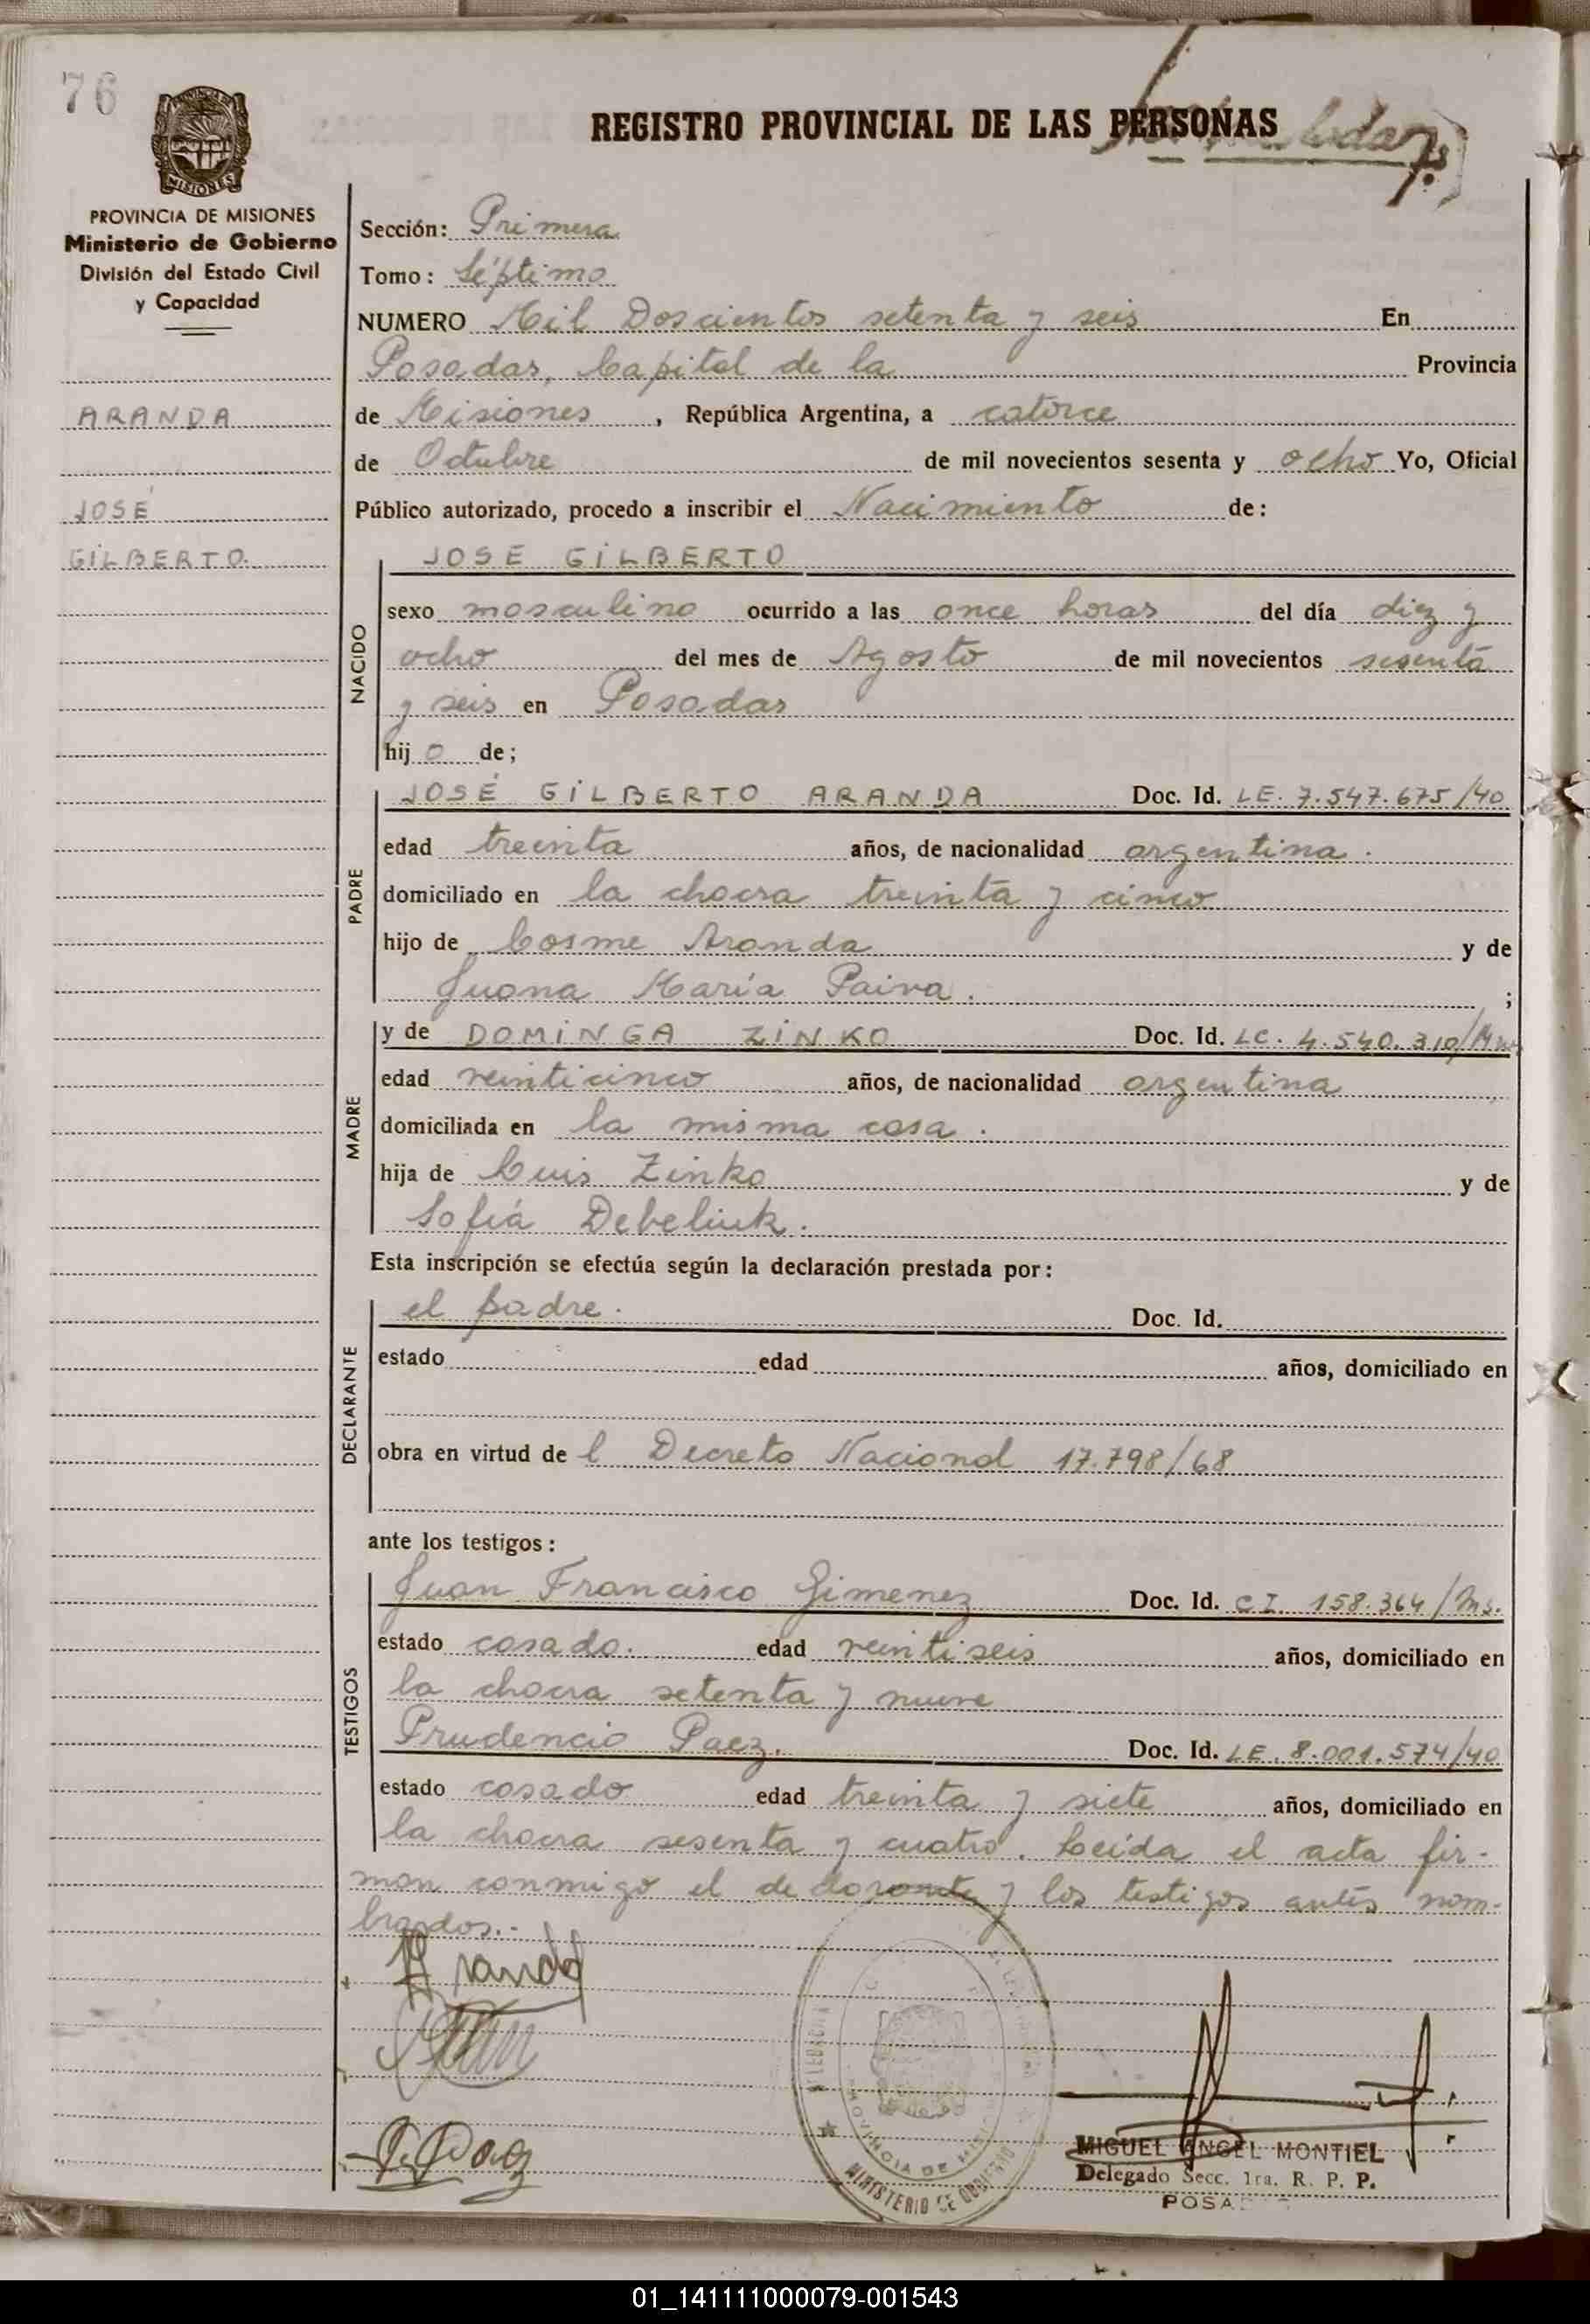 76
REGISTRO PROVINCIAL DE LAS PERSONAS
MISIONES
PROVINCIA DE MISIONES
Ministerio de Gobierno
División del Estado Civil
y Capacidad
ARANDA
JOSÉ
GILBERTO.
Sección: Primera
Tomo: Séptimo
NUMERO Mil Doscientos setenta y seis En
Posadas, Capital de la Provincia
de Misiones, República Argentina, a catorce
de Octubre de mil novecientos sesenta y ocho Yo, Oficial
Público autorizado, procedo a inscribir el Nacimiento de:
NACIDO
JOSE GILBERTO
sexo masculino ocurrido a las once horas del día diez y
ocho del mes de Agosto de mil novecientos sesenta
y seis en Posadas
hijo de;
PADRE
JOSÉ GILBERTO ARANDA Doc. Id. LE. 7.547.675/40
edad treinta años, de nacionalidad argentina.
domiciliado en la chacra treinta y cinco
hijo de Cosme Aranda y de
Juana María Paiva. ;
MADRE
y de DOMINGA ZINKO Doc. Id. LC. 4.540.310/
edad veinticinco años, de nacionalidad argentina
domiciliada en la misma casa.
hija de Luis Zinko y de
Sofía Debeliuk.
Esta inscripción se efectúa según la declaración prestada por:
DECLARANTE
el padre. Doc. Id.
estado edad años, domiciliado en
obra en virtud de l Decreto Nacional 17.798/68
ante los testigos:
TESTIGOS
Juan Francisco Gimenez Doc. Id. C.I. 158.364/Ms.
estado casado. edad veintiseis años, domiciliado en
la chacra setenta y nueve
Prudencio Paez. Doc. Id. LE. 8.001.574/40
estado casado edad treinta y siete años, domiciliado en
la chacra sesenta y cuatro. Leída el acta fir-
man conmigo el declarante y los testigos antes nom-
brados.-
Aranda
PROVINCIA DE MISIONES
MINISTERIO DE GOBIERNO
MIGUEL ANGEL MONTIEL
Delegado Secc. 1ra. R. P. P.
01_141111000079-001543